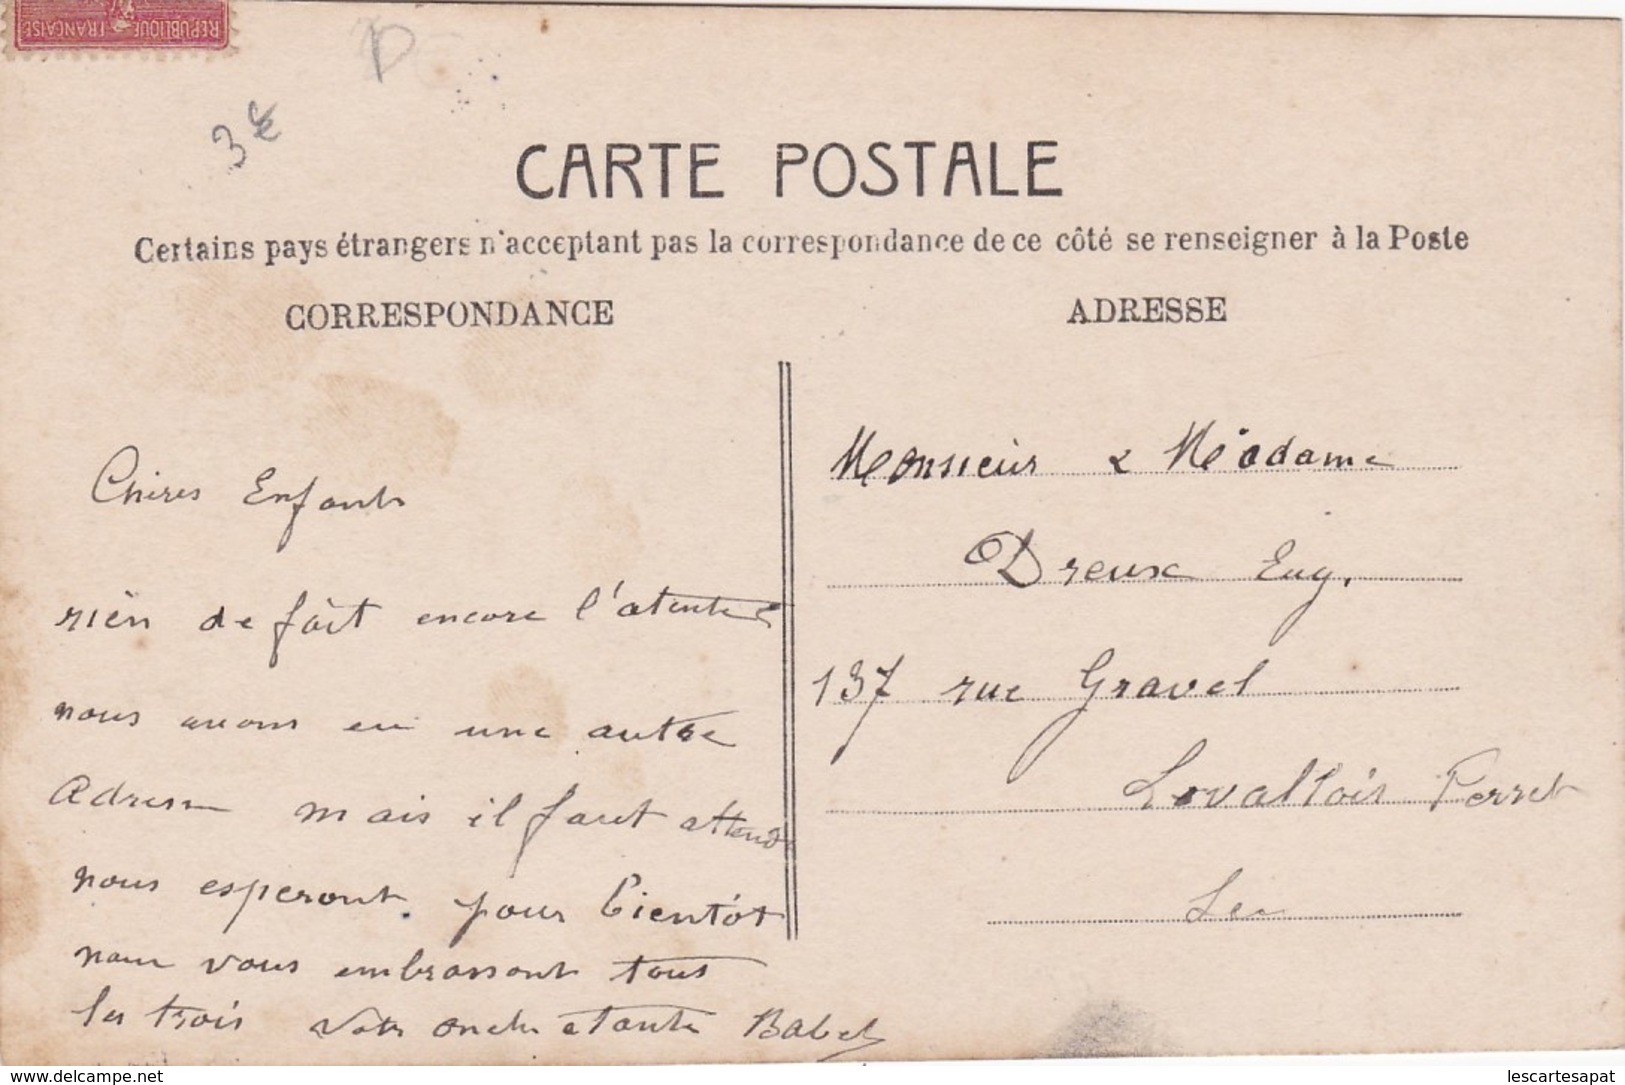 REPUBLIQUE FRANÇAISE
3€
CARTE POSTALE
Certains pays étrangers n'acceptant pas la correspondance de ce côté se renseigner à la Poste
CORRESPONDANCE
Chères Enfants
rien de fait encore l'atente
nous avons eu une autre
adresse mais il faut attendre
nous esperont pour bientôt
nous vous embrassont tous
les trois votre oncle et tante Babet
ADRESSE
Monsieur & Madame
Dreux Eug.
137 rue Gravel
Levallois Perret
delcampe.net
lescartesapat